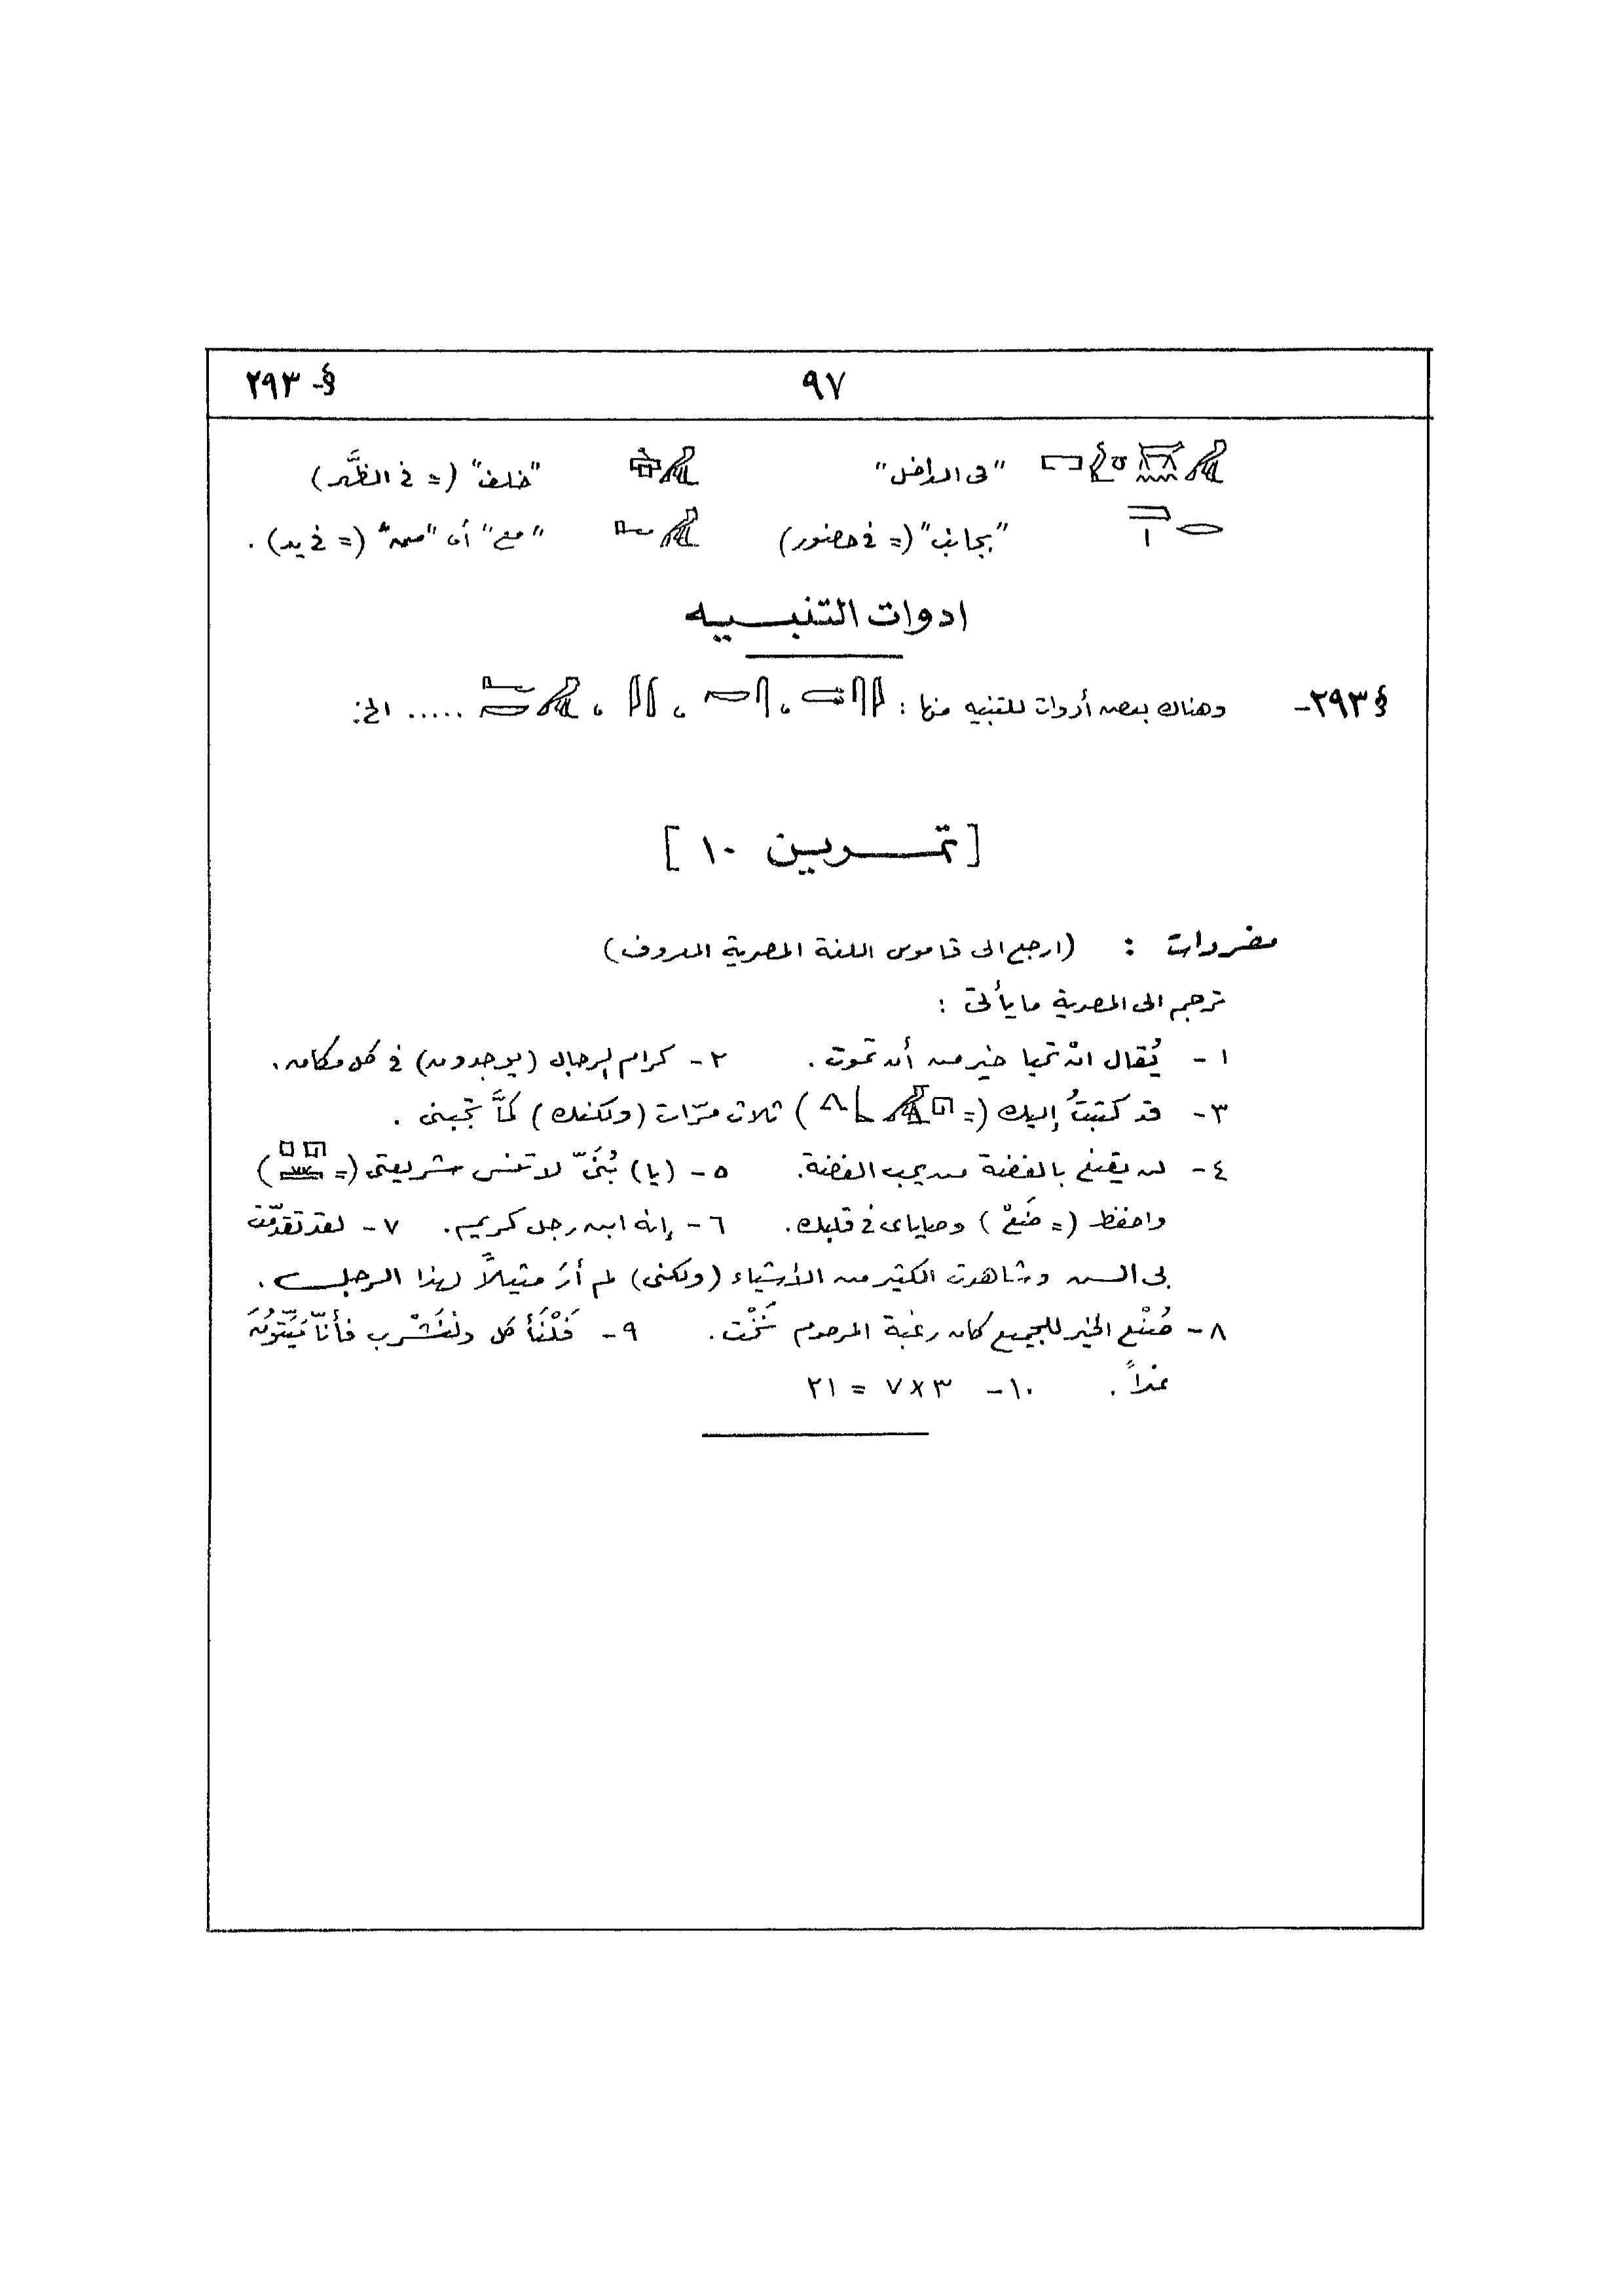 §- ٢٩٣ ٩٧
"فى الداخل" "خلف" (= فى الظَّهر)
"بجانب" (= فى حضور) "مع" أى "معه" (= فى يد).
ادوات التنبيه
§ ٢٩٣- وهناك بعض أدوات للتنبيه منها : ، ، ، ..... الخ:
[تمرين ١٠]
مفردات : (ارجع الى قاموس اللغة المصرية المعروف)
ترجم الى المصرية ما يأتى :
١- يُقال انْ تحيا خير من أن تموت. ٢- كرام الرجال (يوجدون) فى كل مكان.
٣- قد كتبتُ إليك (= ) ثلاث مرّات (ولكنك) لمَّا تجبنى.
٤- لن يقنع بالفضة من يحب الفضة. ٥- (يا) بُنَىّ لا تنس شريعتى (= )
واحفظ (= ضَعْ) وصاياى فى قلبك. ٦- إنه ابن رجل كريم. ٧- لقد تقدّمت
بى السن وشاهدت الكثير من الأشياء (ولكنى) لم أرَ مثيلاً لهذا الرجل.
٨- صُنْع الخير للجميع كان رغبة المرحوم نَخْت. ٩- فَلْنَأكل ولنَشْرب فأنّا مَيِّتُونَ
غداً. ١٠- ٣×٧ = ٢١